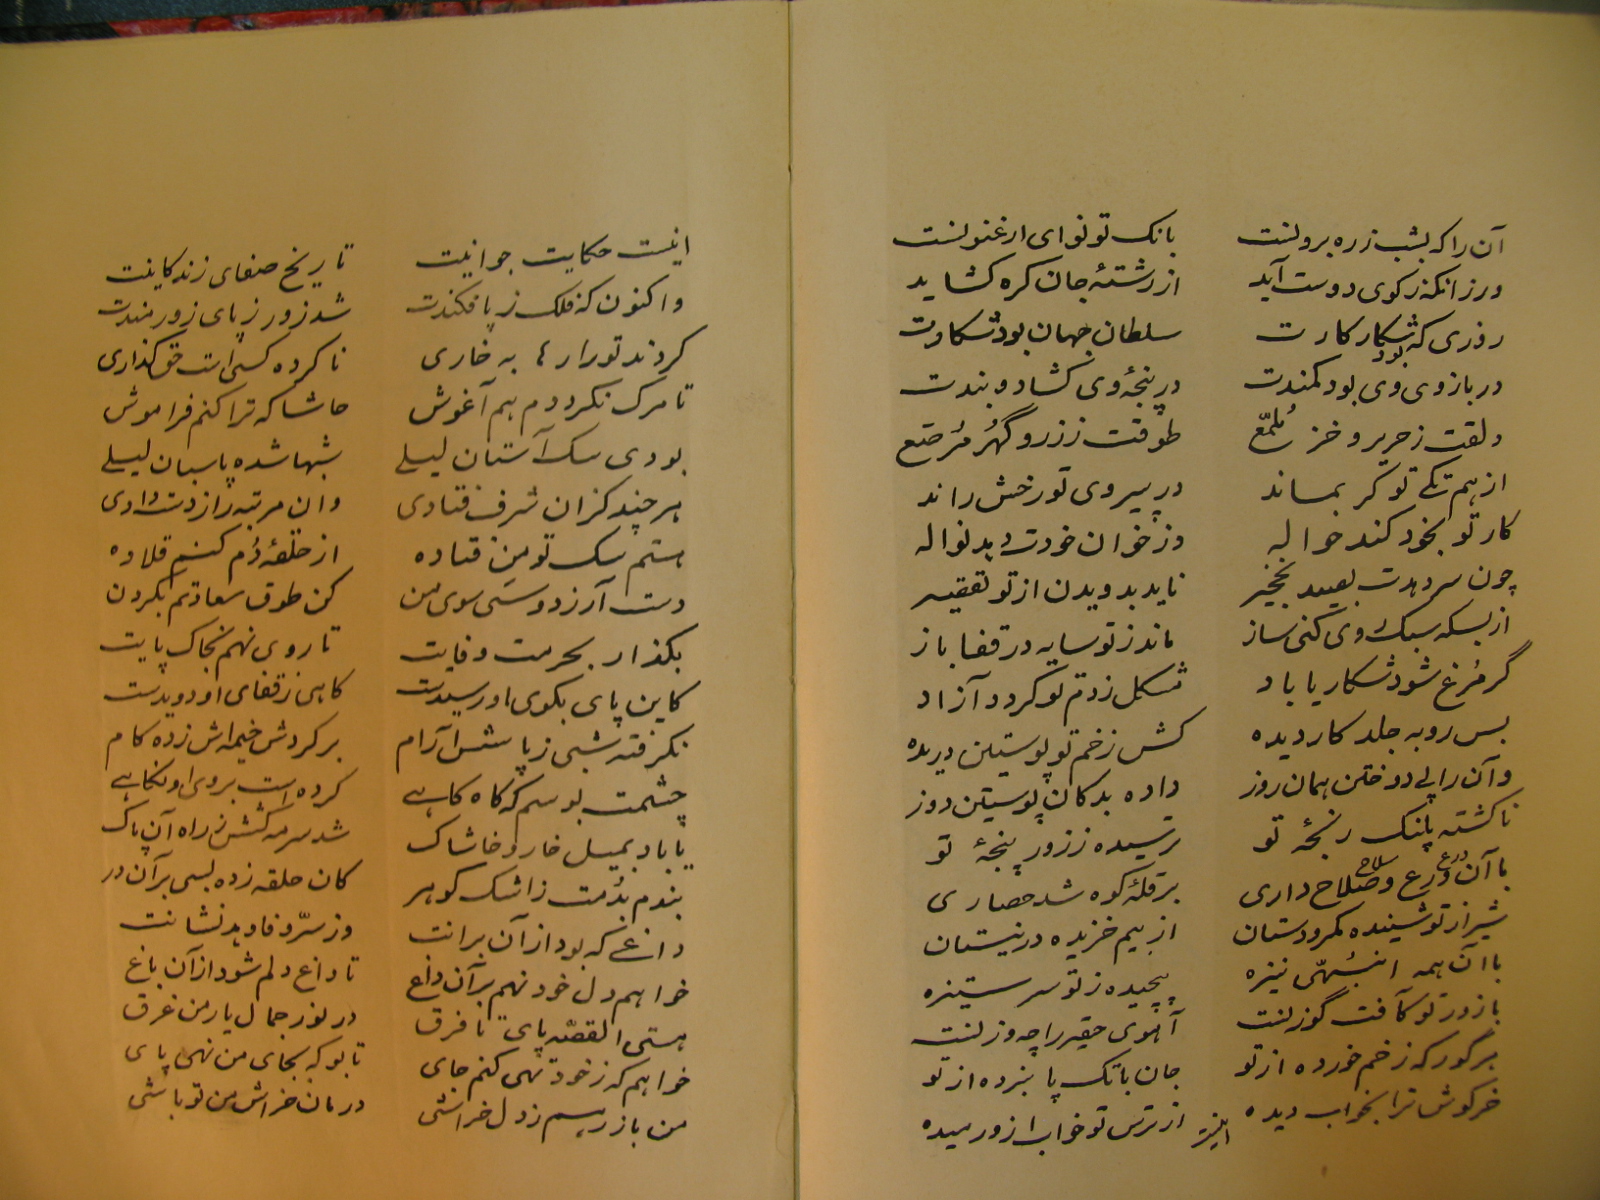 آن را که بشب ز ره برونست بانک تو نوای ارغنونست
ور زانکه ز کوی دوست آید از رشتهٔ جان کره کشاید
روزی که شکار بود کارت سلطان جهان بود شکارت
در بازوی وی بود کمندت در پنجهٔ وی کشاد و بندت
دلقت ز حریر و خز مُلمّع طوقت ز زر و گهُر مُرصّع
از هم تکی تو کر بماند در پیروی تو رخش راند
کار تو بخود کند حواله وز خوان خودت دهد نواله
چون سر دهدت بصید نخجیر ناید بدویدن از تو تقصیر
از بسکه سبک روی کنی ساز ماند ز تو سایه در قفا باز
گر مُرغ شود شکار یا باد مشکل ز دم تو کردد آزاد
بس روبه جلد کار دیده کش زخم تو پوستین دریده
و آن را پی دوختن همان روز داده بدکان پوستین دوز
ناکشته پلنک رنجهٔ تو ترسیده ز زور پنجهٔ تو
با آن درع و سلاح داری بر قلهٔ کوه شد حصاری
شیر از تو شنیده مکر و دستان از بیم خزیده در نیستان
با آن همه اُبّهتی نیزه پیچیده ز تو سر ستیزه
با زور تو کآفت گوزنست آهوی حقیر را چه وزنست
هر گور که زخم خورده از تو جان با تک پا نبرده از تو
خرکوش ترا بخواب دیده از ترس تو خواب ازو رمیده
اینست
اینست حکایت جوانیت تاریخ صفای زندکانیت
واکنون که فلک ز پا فکندت شد زور ز پای زورمندت
کردند تو را رها به خاری ناکرده کسی‌ات حق‌گذاری
تا مرک نکرددم هم آغوش حاشا که ترا کنم فراموش
بودی سک آستان لیلے شبها شده پاسبان لیلے
هر چند کزان شرف فتادی وان مرتبه را ز دست دادی
هستم سک تو من فتاده از حلقهٔ دُم کنم قلاده
دست آر ز دوستی سوی من کن طوق سعادتم بکردن
بکذار بحرمت وفایت تا روی نهم بخاک پایت
کاین پای بکوی او رسیدست کاهی ز قفای او دویدست
نکرفته شبی ز پاسش آرام بر کردش خیمه‌اش زده کام
چشمت بوسم که کاه کاهے کرده است بروی او نکاهے
یا باد بمیل خار و خاشاک شد سرمه کشش ز راه آن پاک
بندم بدُمت ز اشک کوهر کان حلقه زده بسی بر آن در
داغے که بود از آن برانت وز سرّ وفا دهد نشانت
خواهم دل خود نهم بر آن داغ تا داغ دلم شود از آن باغ
هستی القصّه پای تا فرق در نور جمال یار من غرق
خواهم که ز خود تهی کنم جای تا بو که بجای من نهی پای
من باز رهم ز دل خراشی درمان خراش من تو باشی